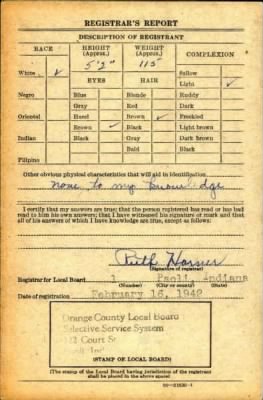 REGISTRAR'S REPORT
DESCRIPTION OF REGISTRANT
RACE HEIGHT (Approx.) WEIGHT (Approx.) COMPLEXION
5'2" 115
White ✓ Sallow
EYES HAIR Light ✓
Negro Blue Blonde Ruddy
Gray Red Dark
Oriental Hazel Brown ✓ Freckled
Brown ✓ Black Light brown
Indian Black Gray Dark brown
Bald Black
Filipino
Other obvious physical characteristics that will aid in identification
none to my knowledge
I certify that my answers are true; that the person registered has read or has had
read to him his own answers; that I have witnessed his signature or mark and that
all of his answers of which I have knowledge are true, except as follows:
Ruth Horner
(Signature of registrar)
Registrar for Local Board 1 Paoli, Indiana
(Number) (City or county) (State)
Date of registration February 16, 1942
Orange County Local Board
Selective Service System
Court St
(STAMP OF LOCAL BOARD)
(The stamp of the Local Board having jurisdiction of the registrant
shall be placed in the above space)